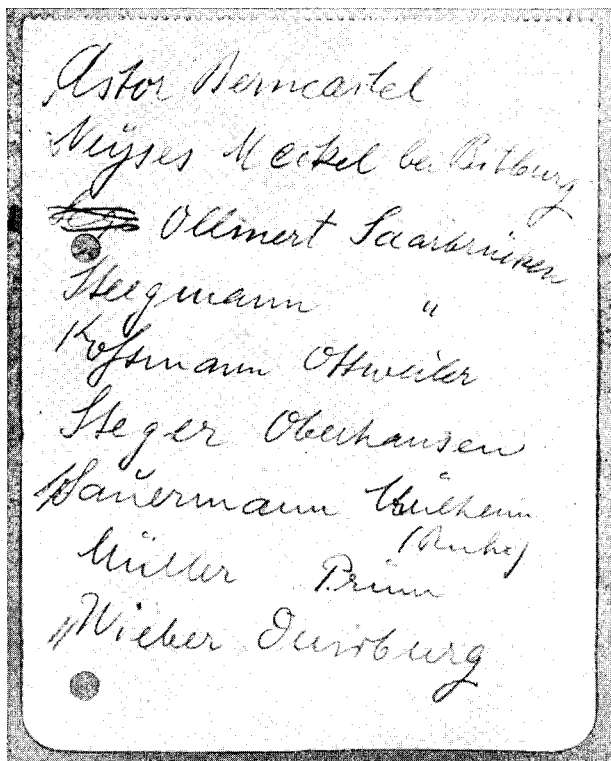 Astor Berncastel
Neyses Meckel bei Bitburg
Ollmert Saarbrücken
Steegmann "
Koffmann Ottweiler
Steger Oberhausen
Sauermann Mülheim
(Ruhr)
Müller Prüm
Wieber Duisburg